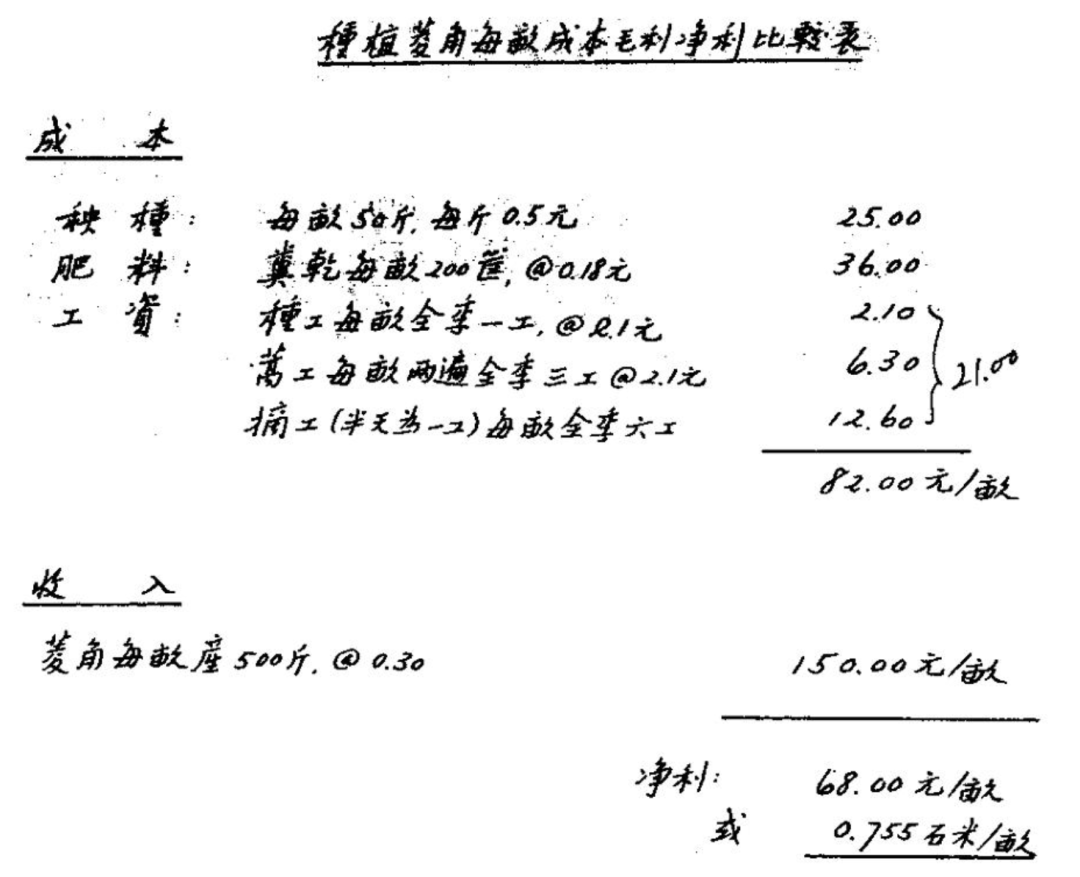 種植菱角每畝成本毛利净利比較表
成 本
秧 種: 每畝50斤, 每斤0.5元 25.00
肥 料: 糞乾每畝200筐, @0.18元 36.00
工 資: 種工每畝全季一工, @2.1元 2.10
工每畝两遍全季三工@2.1元 6.30 21.00
摘工(半天為一工)每畝全季六工 12.60
82.00元/畝
收 入
菱角每畝產500斤, @0.30 150.00元/畝
净利: 68.00元/畝
或 0.755石米/畝